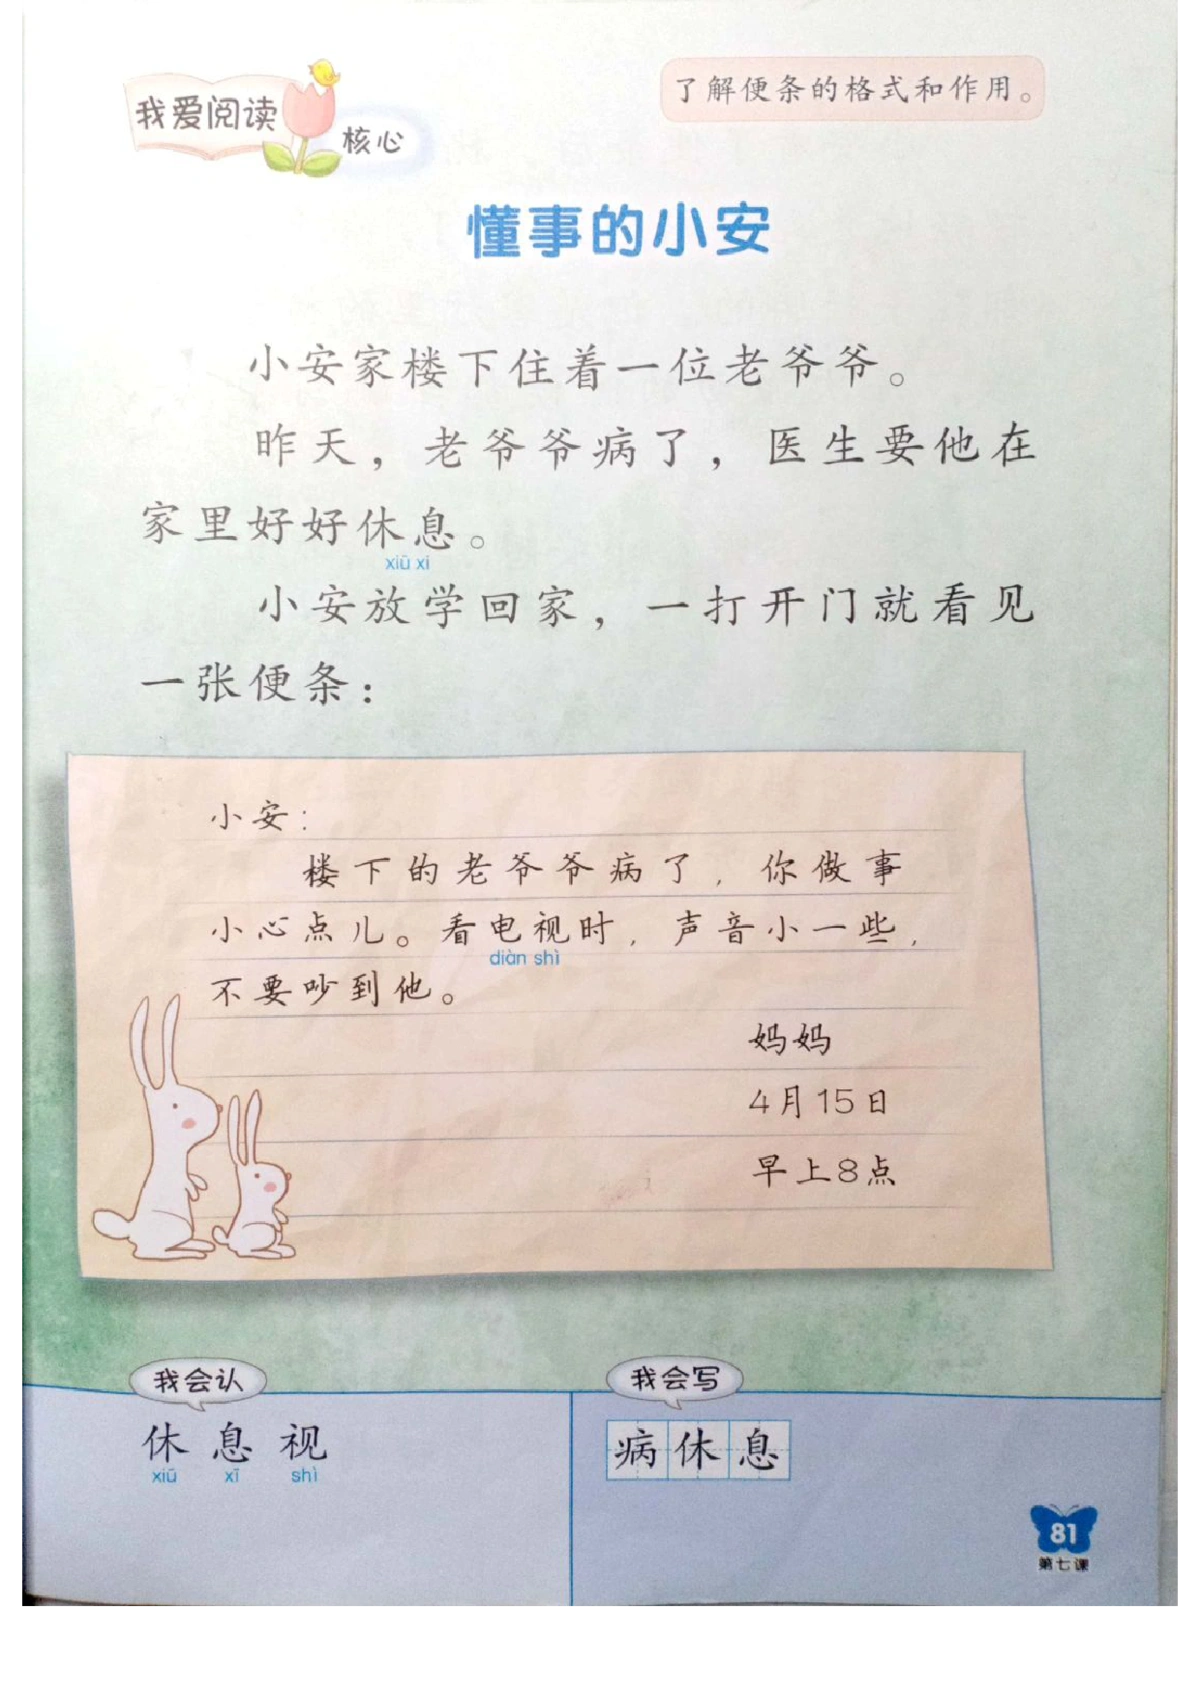 我爱阅读
核心
了解便条的格式和作用。
懂事的小安
小安家楼下住着一位老爷爷。
昨天，老爷爷病了，医生要他在
家里好好休息。
xiū xi
小安放学回家，一打开门就看见
一张便条：
小安：
楼下的老爷爷病了，你做事
小心点儿。看电视时，声音小一些，
diàn shì
不要吵到他。
妈妈
4月15日
早上8点
我会认
休 息 视
xiū xī shì
我会写
病休息
81
第七课